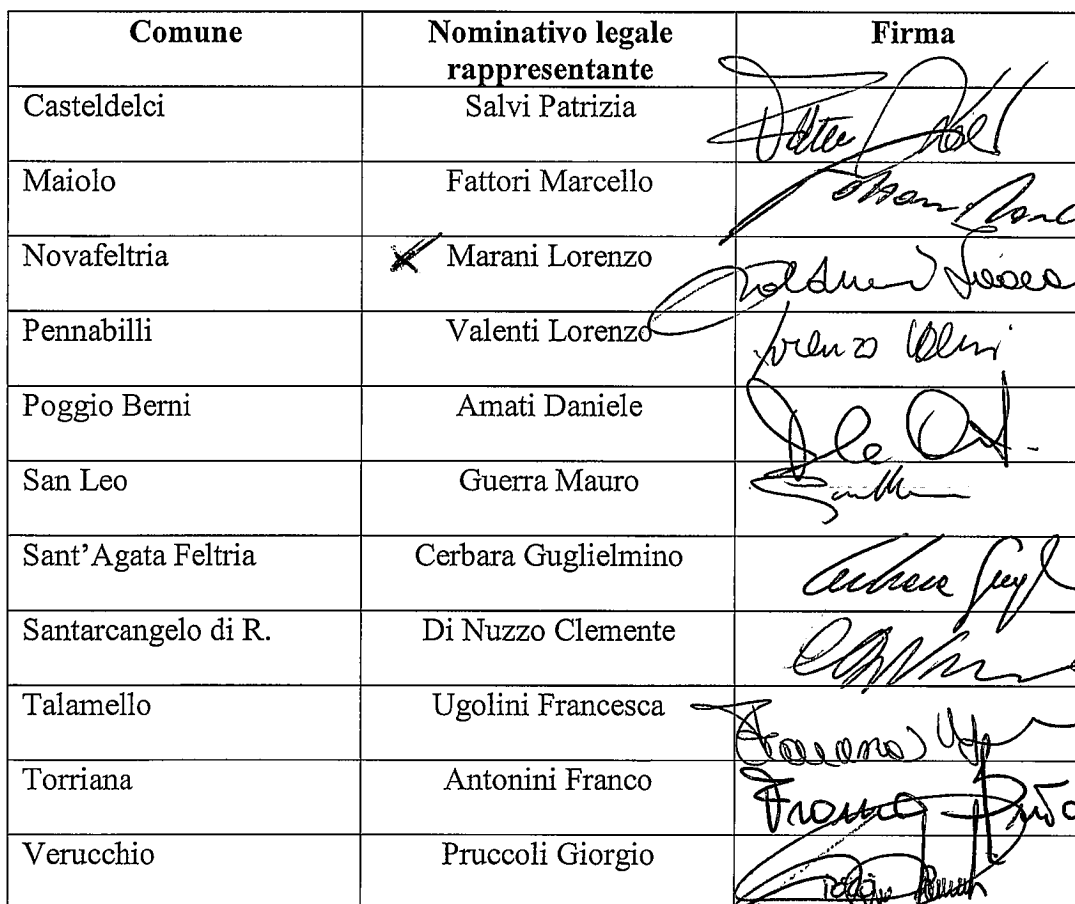 Comune Nominativo legale rappresentante Firma
Casteldelci Salvi Patrizia
Maiolo Fattori Marcello
Novafeltria Marani Lorenzo
Pennabilli Valenti Lorenzo Lorenzo
Poggio Berni Amati Daniele
San Leo Guerra Mauro
Sant’Agata Feltria Cerbara Guglielmino
Santarcangelo di R. Di Nuzzo Clemente
Talamello Ugolini Francesca
Torriana Antonini Franco Franco
Verucchio Pruccoli Giorgio